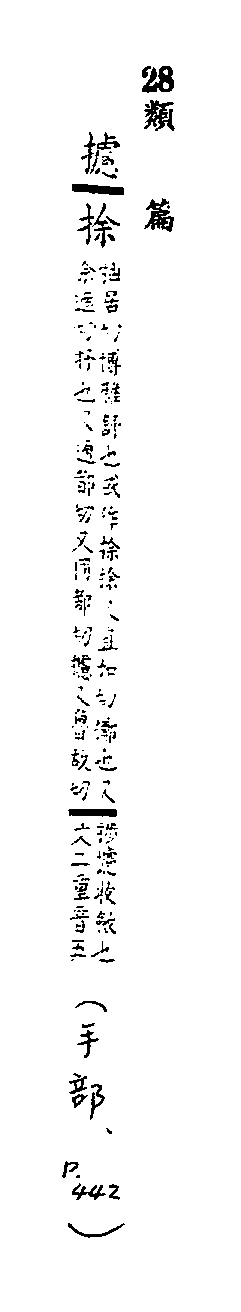 28類篇
攄捈
抽居切博雅舒也或作捈捈又直加切衞也又
余遮切抒也又通都切又同都切攄又魯故切
捗攄收斂也
文二重音五
（手部、P.442）